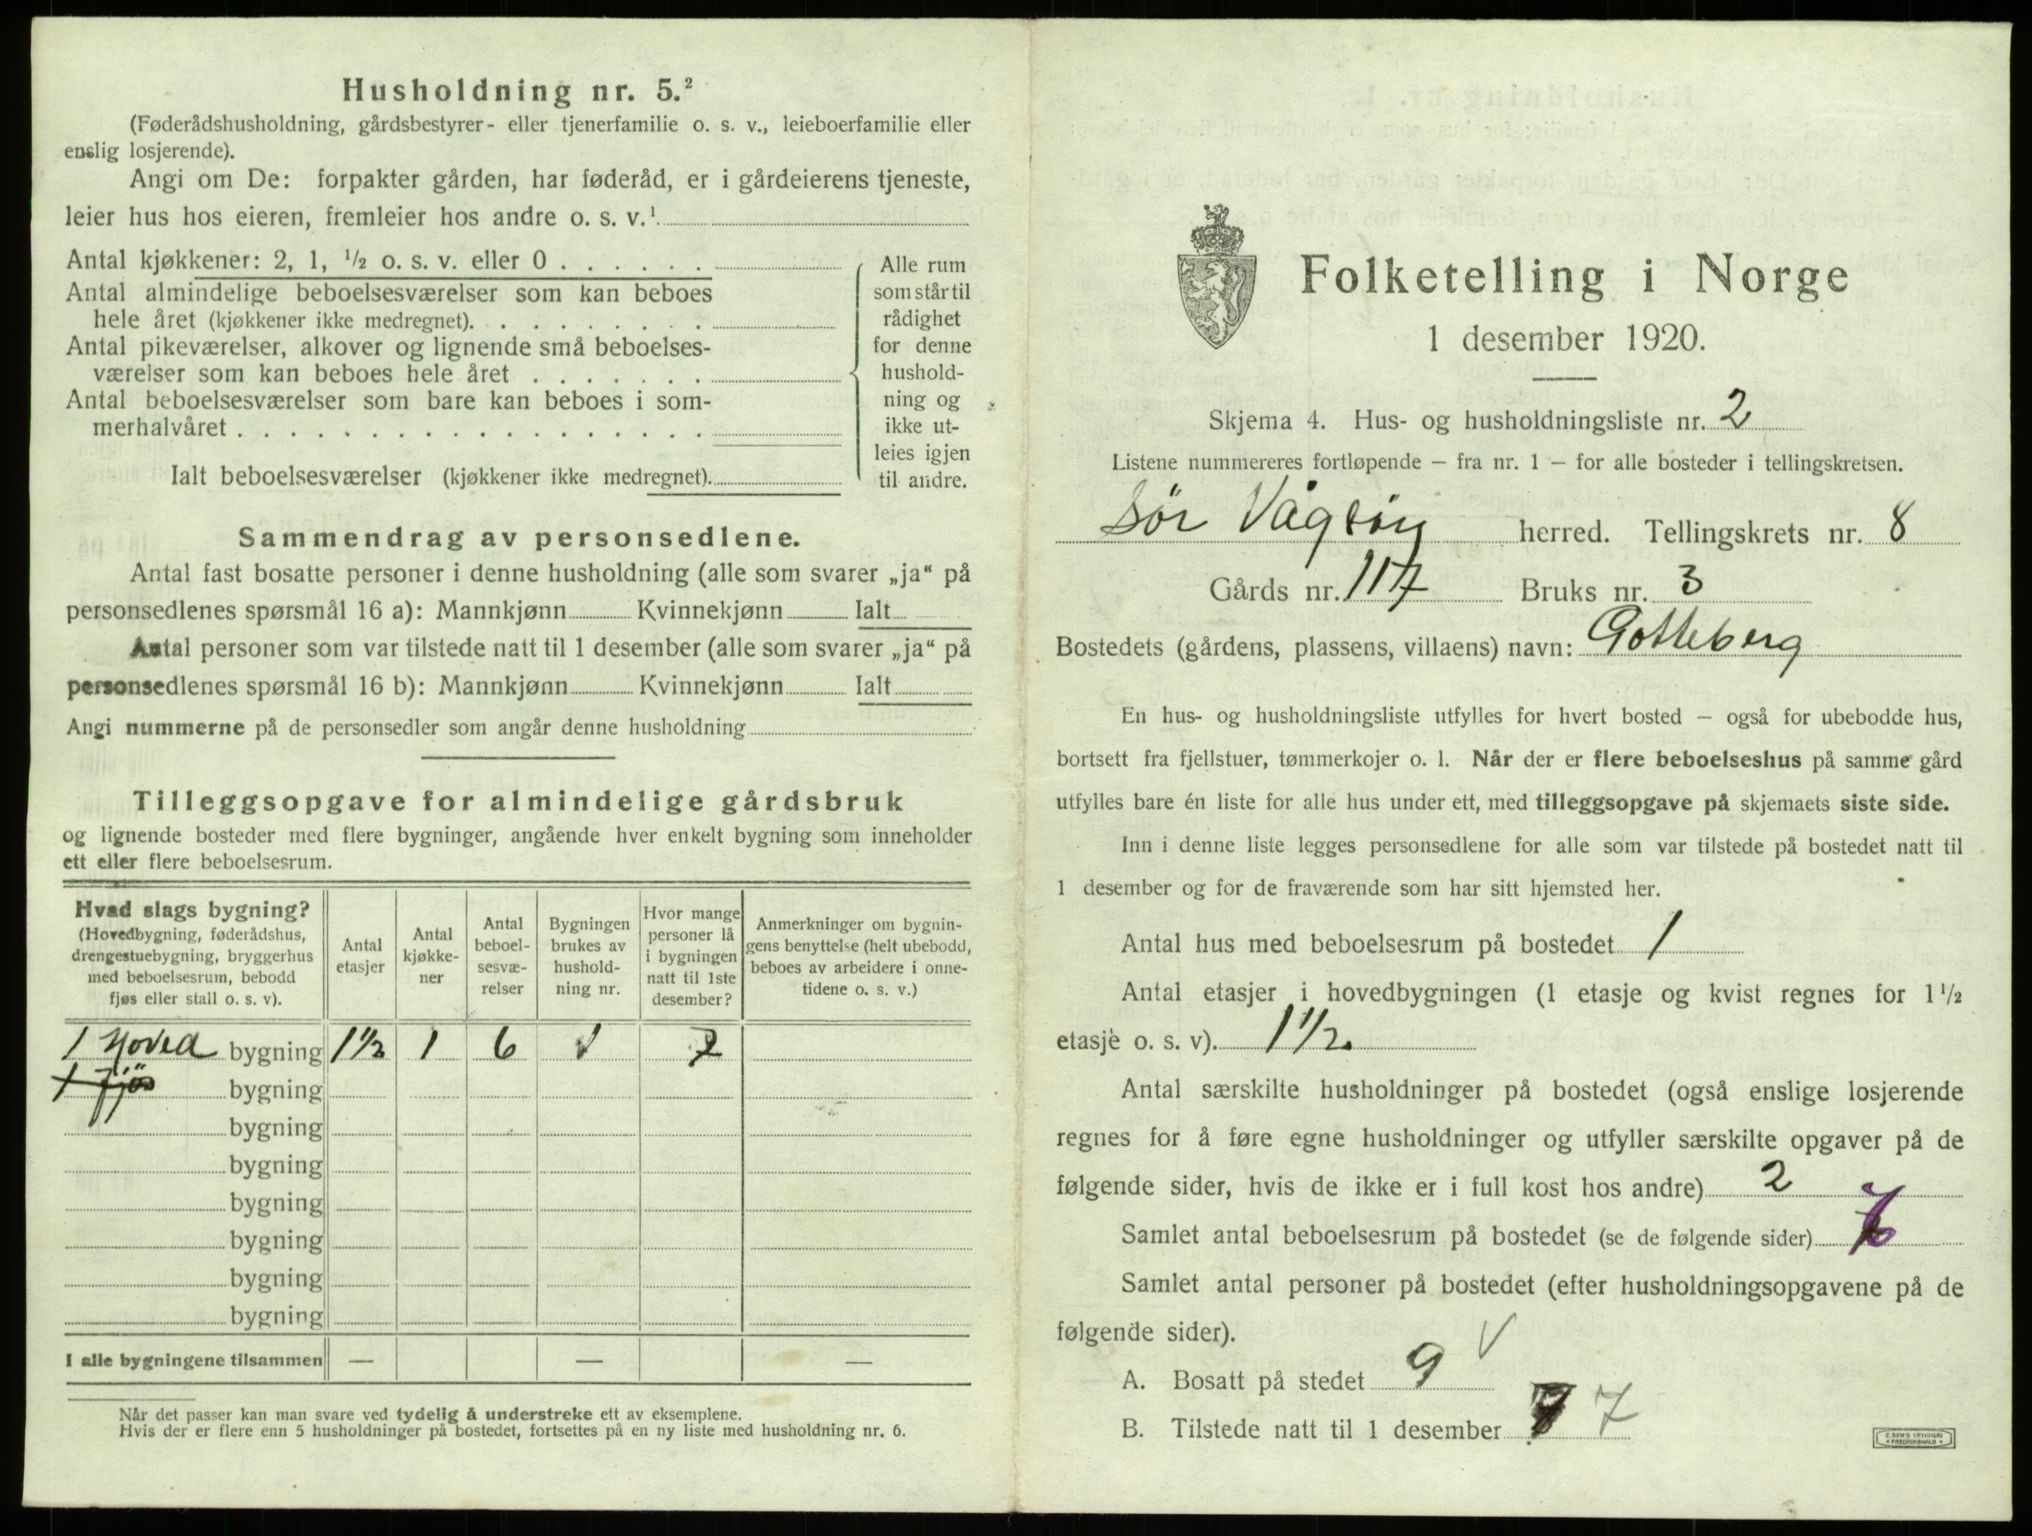 Husholdning nr. 5.²
(Føderådshusholdning, gårdsbestyrer- eller tjenerfamilie o. s. v., leieboerfamilie eller
enslig losjerende).
Angi om De: forpakter gården, har føderåd, er i gårdeierens tjeneste,
leier hus hos eieren, fremleier hos andre o. s. v.¹
Antal kjøkkener: 2, 1, ½ o. s. v. eller 0 . . . . . .
Antal almindelige beboelsesværelser som kan beboes
hele året (kjøkkener ikke medregnet). . . . . . . . .
Antal pikeværelser, alkover og lignende små beboelses-
værelser som kan beboes hele året . . . . . . .
Antal beboelsesværelser som bare kan beboes i som-
merhalvåret . . . . . . . . . . . . . . . . . .
Ialt beboelsesværelser (kjøkkener ikke medregnet).
Alle rum
som står til
rådighet
for denne
hushold-
ning og
ikke ut-
leies igjen
til andre.
Sammendrag av personsedlene.
Antal fast bosatte personer i denne husholdning (alle som svarer „ja“ på
personsedlenes spørsmål 16 a): Mannkjønn Kvinnekjønn Ialt
Antal personer som var tilstede natt til 1 desember (alle som svarer „ja“ på
personsedlenes spørsmål 16 b): Mannkjønn Kvinnekjønn Ialt
Angi nummerne på de personsedler som angår denne husholdning
Tilleggsopgave for almindelige gårdsbruk
og lignende bosteder med flere bygninger, angående hver enkelt bygning som inneholder
ett eller flere beboelsesrum.
Hvad slags bygning?
(Hovedbygning, føderådshus,
drengestuebygning, bryggerhus
med beboelsesrum, bebodd
fjøs eller stall o. s. v).
Antal
etasjer
Antal
kjøkke-
ner
Antal
beboel-
sesvæ-
relser
Bygningen
brukes av
hushold-
ning nr.
Hvor mange
personer lå
i bygningen
natt til 1ste
desember?
Anmerkninger om bygnin-
gens benyttelse (helt ubebodd,
beboes av arbeidere i onne-
tidene o. s. v.)
1 Hoved bygning 1½ 1 6 1 7
1 fjös bygning
bygning
bygning
bygning
bygning
bygning
bygning
I alle bygningene tilsammen — — —
Når det passer kan man svare ved tydelig å understreke ett av eksemplene.
Hvis der er flere enn 5 husholdninger på bostedet, fortsettes på en ny liste med husholdning nr. 6.
Folketelling i Norge
1 desember 1920.
Skjema 4. Hus- og husholdningsliste nr. 2
Listene nummereres fortløpende – fra nr. 1 – for alle bosteder i tellingskretsen.
Sör Vågsöy herred. Tellingskrets nr. 8
Gårds nr. 117 Bruks nr. 3
Bostedets (gårdens, plassens, villaens) navn: Gotteberg
En hus- og husholdningsliste utfylles for hvert bosted – også for ubebodde hus,
bortsett fra fjellstuer, tømmerkojer o. l. Når der er flere beboelseshus på samme gård
utfylles bare én liste for alle hus under ett, med tilleggsopgave på skjemaets siste side.
Inn i denne liste legges personsedlene for alle som var tilstede på bostedet natt til
1 desember og for de fraværende som har sitt hjemsted her.
Antal hus med beboelsesrum på bostedet 1
Antal etasjer i hovedbygningen (1 etasje og kvist regnes for 1½
etasje o. s. v). 1½.
Antal særskilte husholdninger på bostedet (også enslige losjerende
regnes for å føre egne husholdninger og utfyller særskilte opgaver på de
følgende sider, hvis de ikke er i full kost hos andre) 2
Samlet antal beboelsesrum på bostedet (se de følgende sider)
Samlet antal personer på bostedet (efter husholdningsopgavene på de
følgende sider).
A. Bosatt på stedet 9
B. Tilstede natt til 1 desember 7